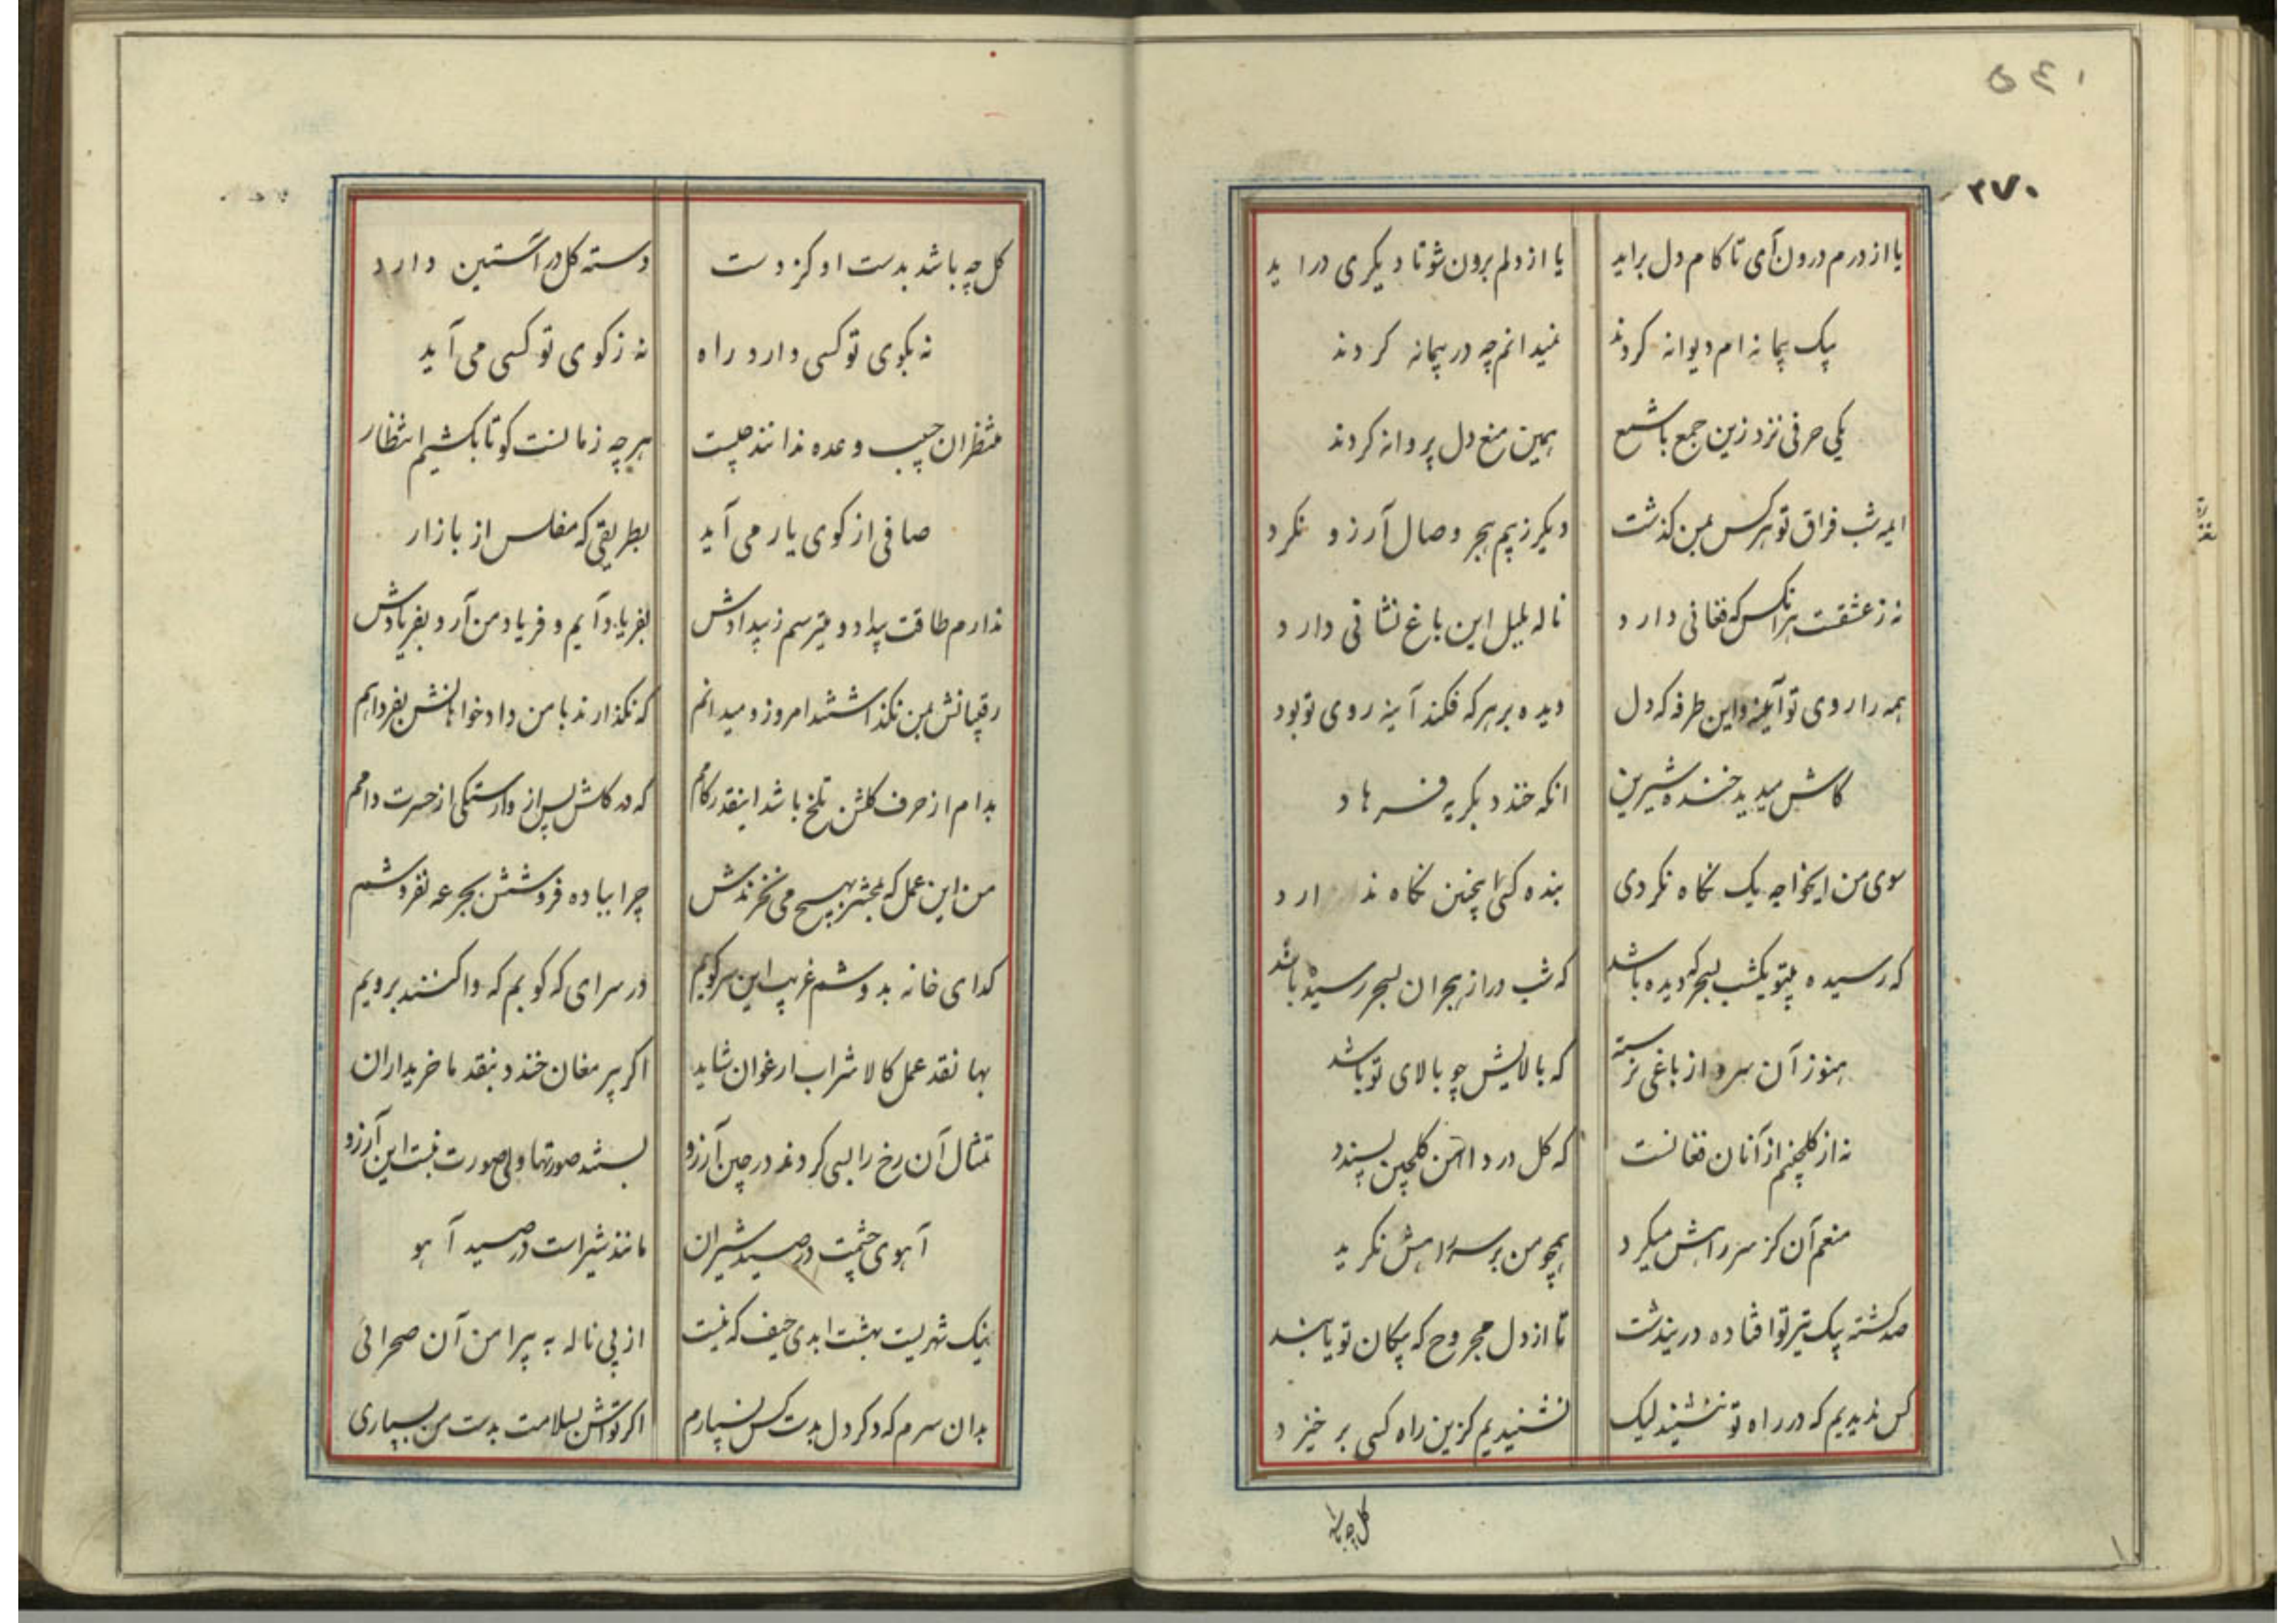 ۵۴۰
۲۷۰
یا از درم درون آی تا کام دل براید یا از دلم برون شو تا دیگری دراید
بیک پیمانه ام دیوانه کردند نمیدانم چه در پیمانه کردند
یکی حرفی نزد زین جمع با شمع همین منع دل پروانه کردند
به شب فراق تو هر کس بمن گذشت دیگر ز بیم هجر وصال آرزو نکرد
نه ز عشقت هر انکس که فغانی دارد ناله بلبل این باغ نشانی دارد
همه را روی تو آیینه و این طرفه که دل دیده بر هر که فکند آینه روی تو بود
کاش میدید خنده شیرین انکه خندد بگریه فرهاد
سوی من ایخواجه یک نگاه نکردی بنده کسی اینچنین نگاه ندارد
که رسیده بتو یکشب بسحر که دیده باشد که شب دراز هجران بسحر رسیده باشد
هنوز آن سرو از باغی نرسته که بالایش چو بالای تو باشد
نه از گلچینم از آنان فغانست که گل در دامن گلچین پسندد
منعم آن کز سر راهش میکرد همچو من بر سر راهش نگرید
صد کشته بیک تیر تو افتاده دریندشت تا از دل مجروح که پیکان تو یابند
کس ندیدیم که در راه تو ننشیند لیک نشنیدیم کزین راه کسی بر خیزد
گل چه باشد
گل چه باشد بدست او کز دست دسته گل در آستین دارد
نه بکوی تو کسی دارد راه نه ز کوی تو کسی می آید
منتظران حبیب وعده ندانند چیست هر چه زمانست کو تا بکشیم انتظار
صافی از کوی یار می آید بطریقی که مفلس از بازار
ندارم طاقت بیداد و میترسم ز بیدادش بفریاد آیم و فریاد من آرد بفریادش
رقیبانش بمن نگذاشتند امروز و میدانم که نگذارند با من دادخواهانش بفردا هم
بدام از حرف گلشن تلخ باشد اینقدر کامم که در کاش پس از وارستگی از حسرت دامم
من این عمل که بمحشر بهیچ می نخرندش چرا بباده فروشش بجرعه نفروشم
گدای خانه بدوشم غریب این سر کویم در سرای که کوبم که واکنند برویم
بها نقد عمل کالا شراب ارغوان شاید اگر پیر مغان خندد بنقد ما خریداران
تمثال آن رخ را بسی کردند در چین آرزو بستند صورتها ولی صورت نبست این آرزو
آهوی چشمت در صید شیران مانند شیر است در صید آهو
نیک شهریست بهشت ابدی حیف که نیست از پی ناله به پیرامن آن صحرائی
بدان سرم که دگر دل بدست کس نسپارم اگر تواش بسلامت بدست من بسپاری